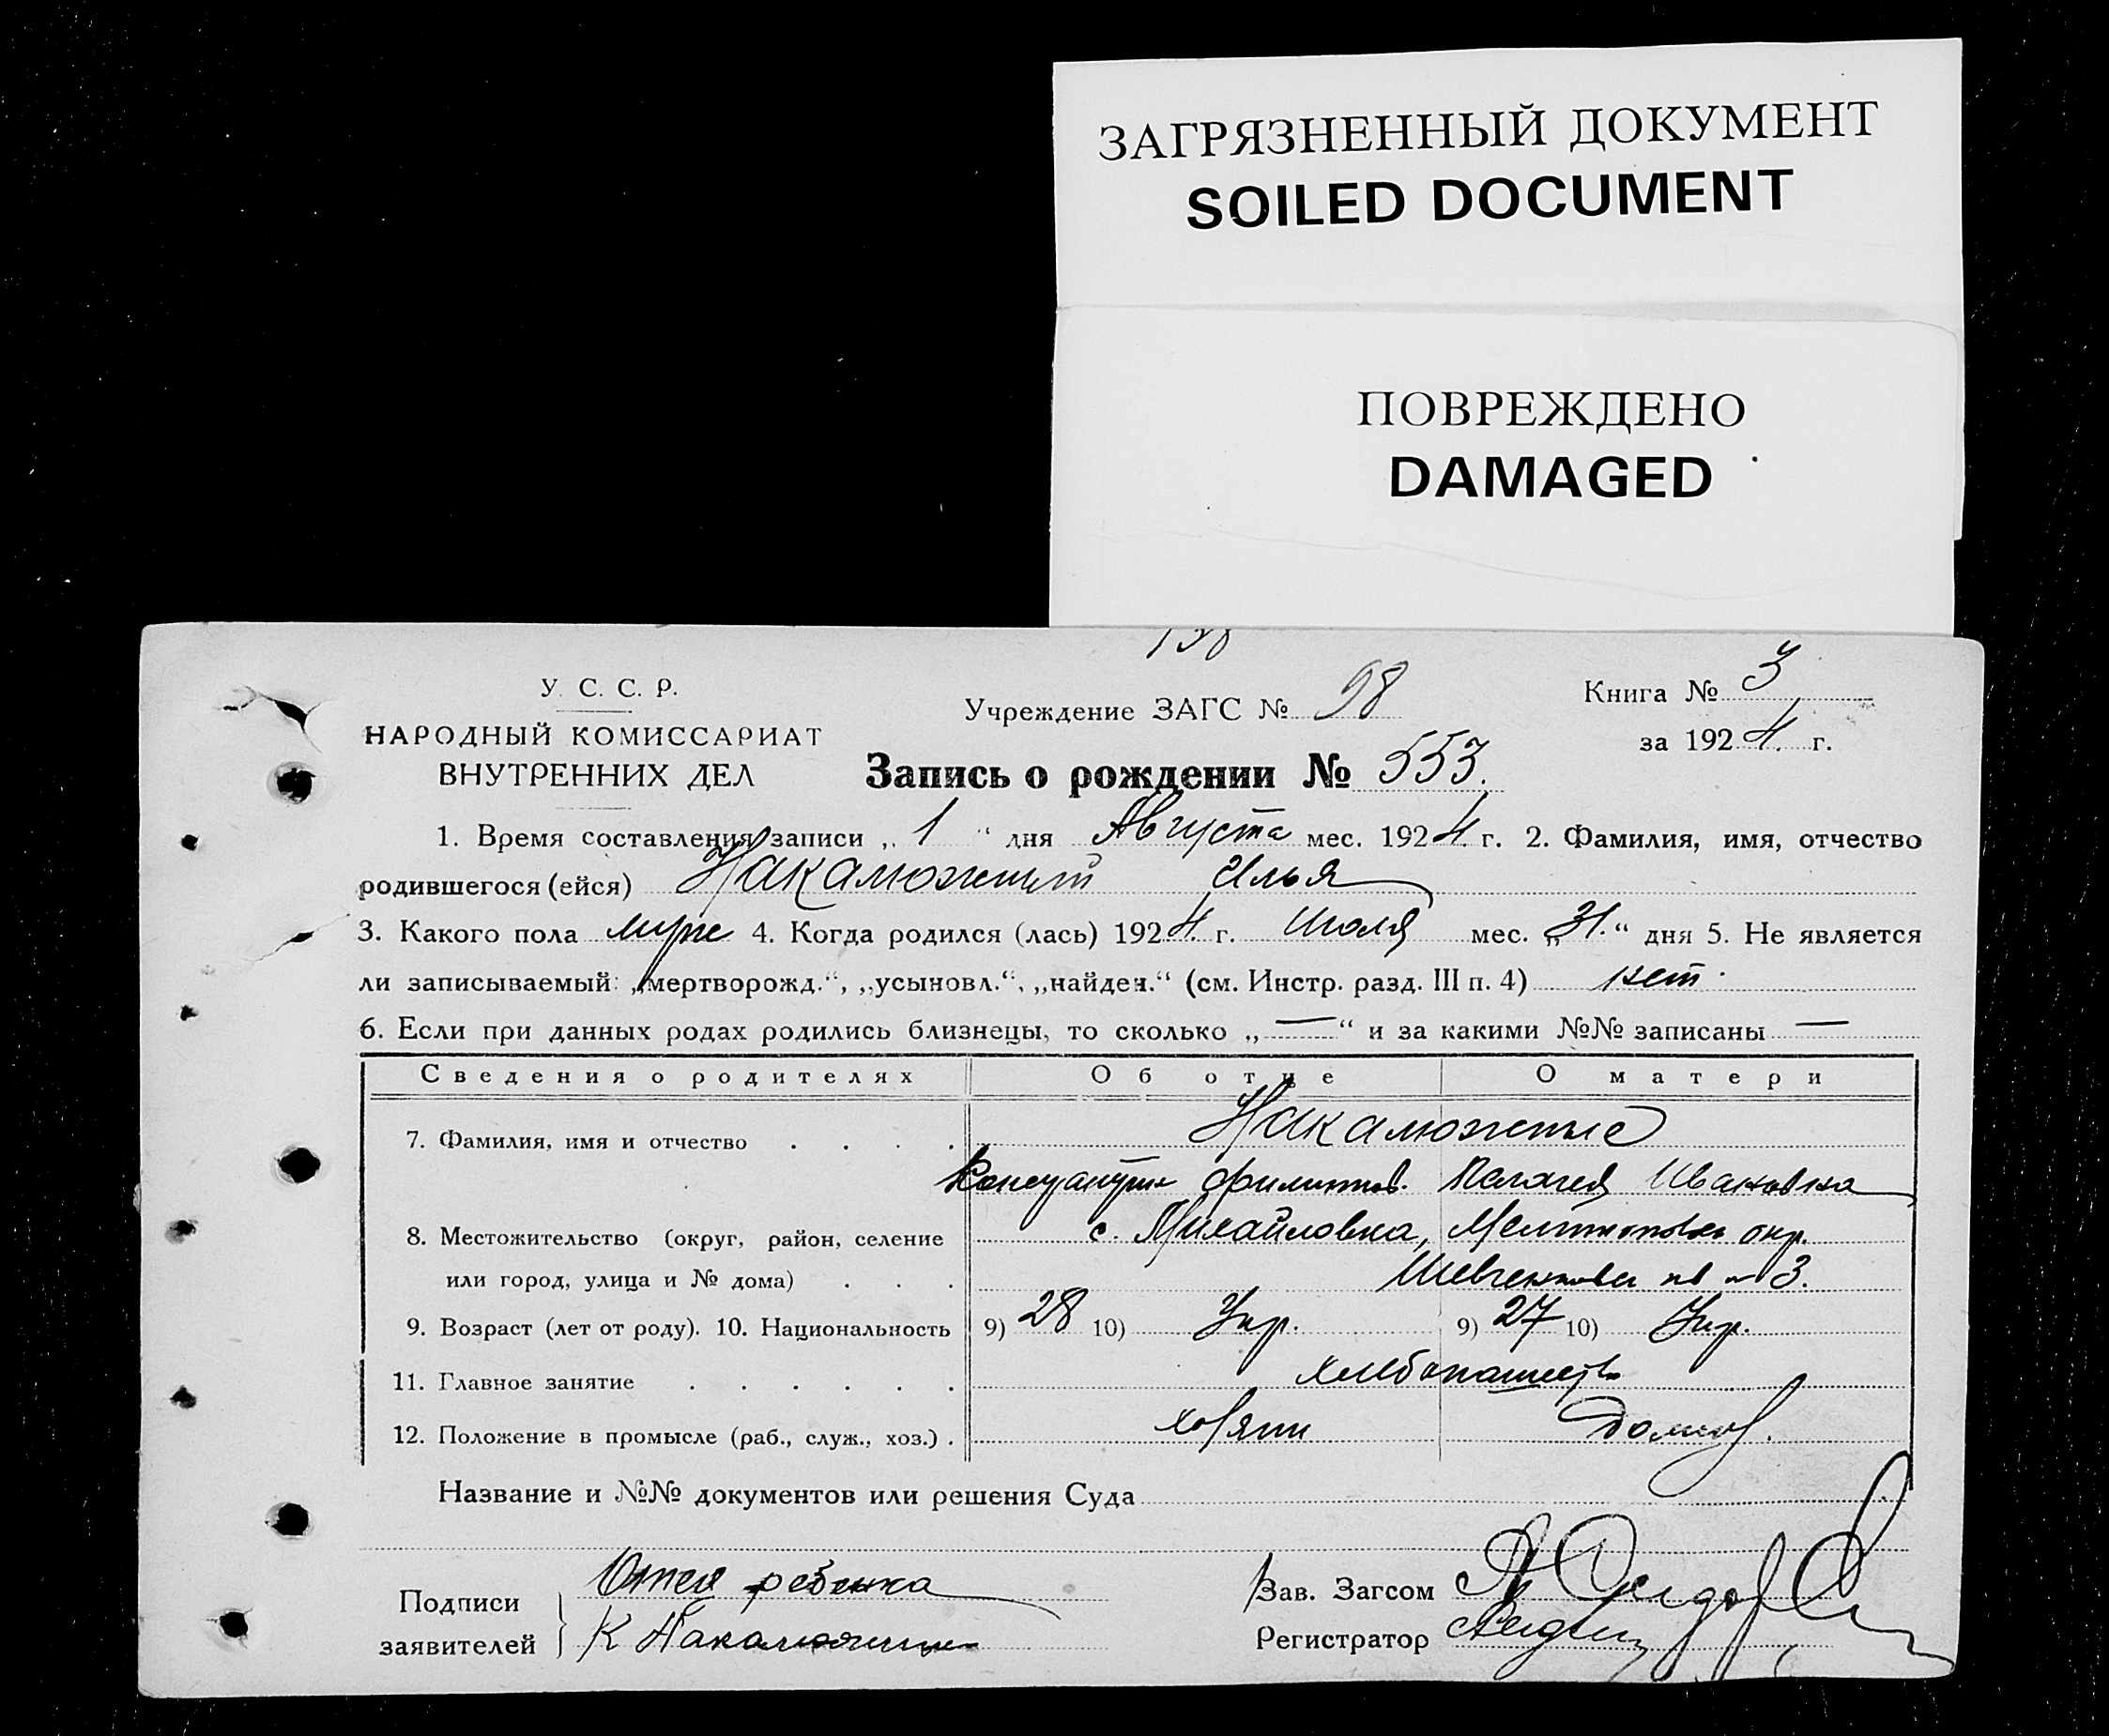 ЗАГРЯЗНЕННЫЙ ДОКУМЕНТ
SOILED DOCUMENT
ПОВРЕЖДЕНО
DAMAGED
У. С. С. Р.
НАРОДНЫЙ КОМИССАРИАТ
ВНУТРЕННИХ ДЕЛ
Учреждение ЗАГС № 98
Книга № 3
за 1924 г.
Запись о рождении № 553.
1. Время составления записи „ 1 “ дня Августа мес. 1924 г. 2. Фамилия, имя, отчество
родившегося (ейся) Накалюжный Илья
3. Какого пола муж 4. Когда родился (лась) 1924 г. Июля мес. „31.“ дня 5. Не является
ли записываемый: „мертворожд.“, „усыновл.“, „найден.“ (см. Инстр. разд. III п. 4) нет
6. Если при данных родах родились близнецы, то сколько „—“ и за какими №№ записаны —
Сведения о родителях Об отце О матери
7. Фамилия, имя и отчество . . . . Накалюжные
Филиппов. Пелагея Ивановна
8. Местожительство (округ, район, селение с. Михайловка, окр.
или город, улица и № дома) . . . 3.
9. Возраст (лет от роду). 10. Национальность 9) 28 10) Укр. 9) 27 10) Укр.
11. Главное занятие . . . . . .
12. Положение в промысле (раб., служ., хоз.) . хозяин
Название и №№ документов или решения Суда
Подписи Отец ребенка
заявителей К Накалюжный
Зав. Загсом
Регистратор